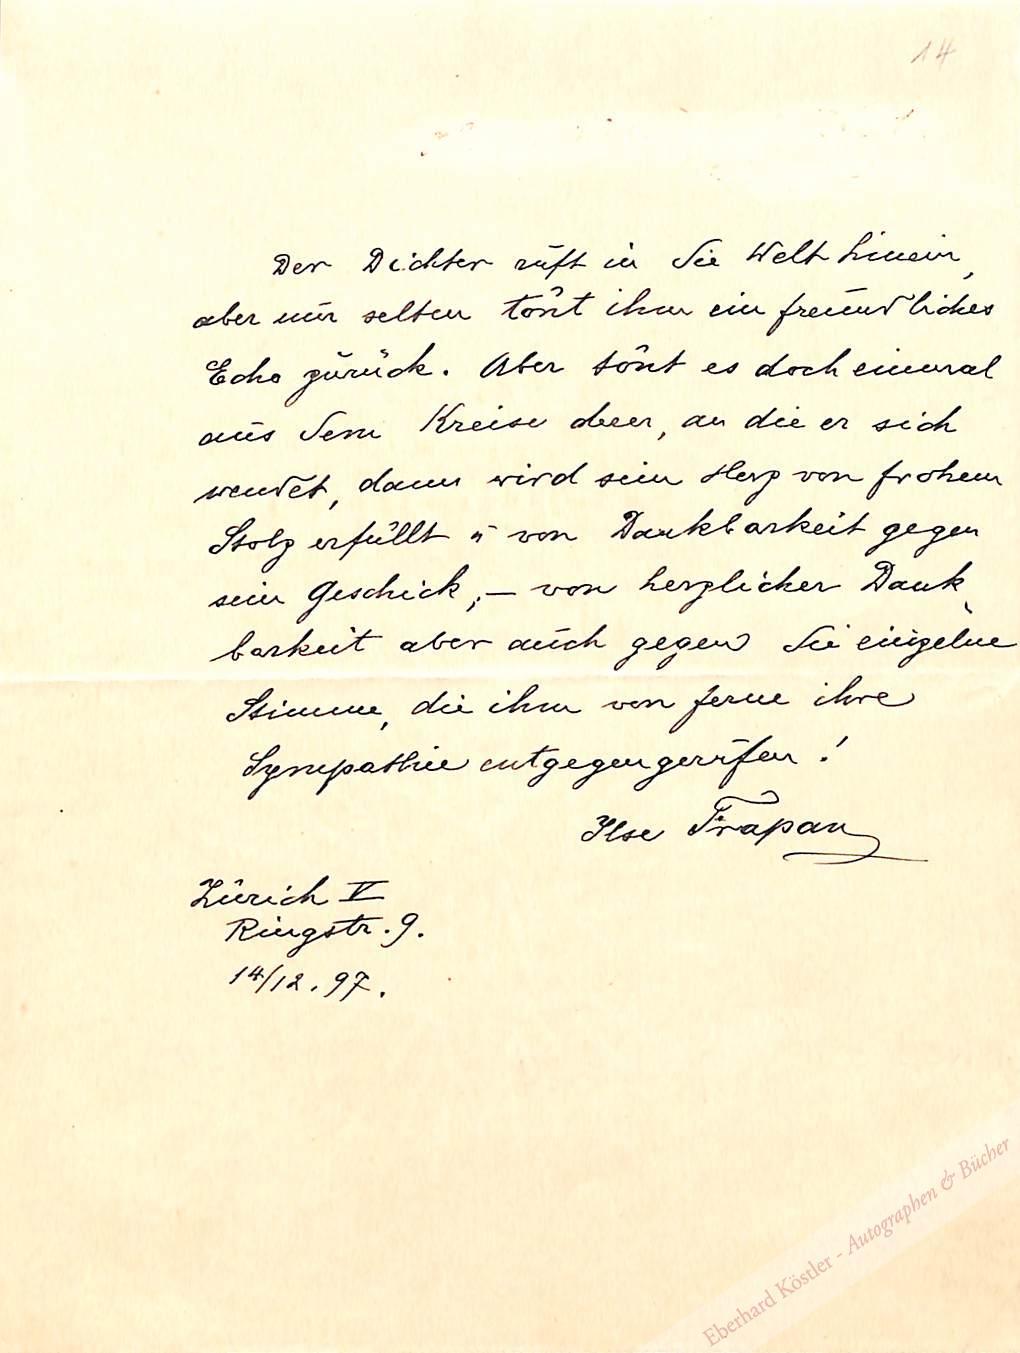 14
Der Dichter ruft in die Welt hinein,
aber nur selten tönt ihm ein freundliches
Echo zurück. Aber tönt es doch einmal
aus dem Kreise derer, an die er sich
wendet, dann wird sein Herz von frohem
Stolz erfüllt u von Dankbarkeit gegen
sein Geschick, – von herzlicher Dank-
barkeit aber auch gegen die einzelne
Stimme, die ihm von ferne ihre
Sympathie entgegengerufen!
Ilse Frapan
Zürich V
Ringstr. 9.
14/12. 97.
Eberhard Köstler - Autographen & Bücher